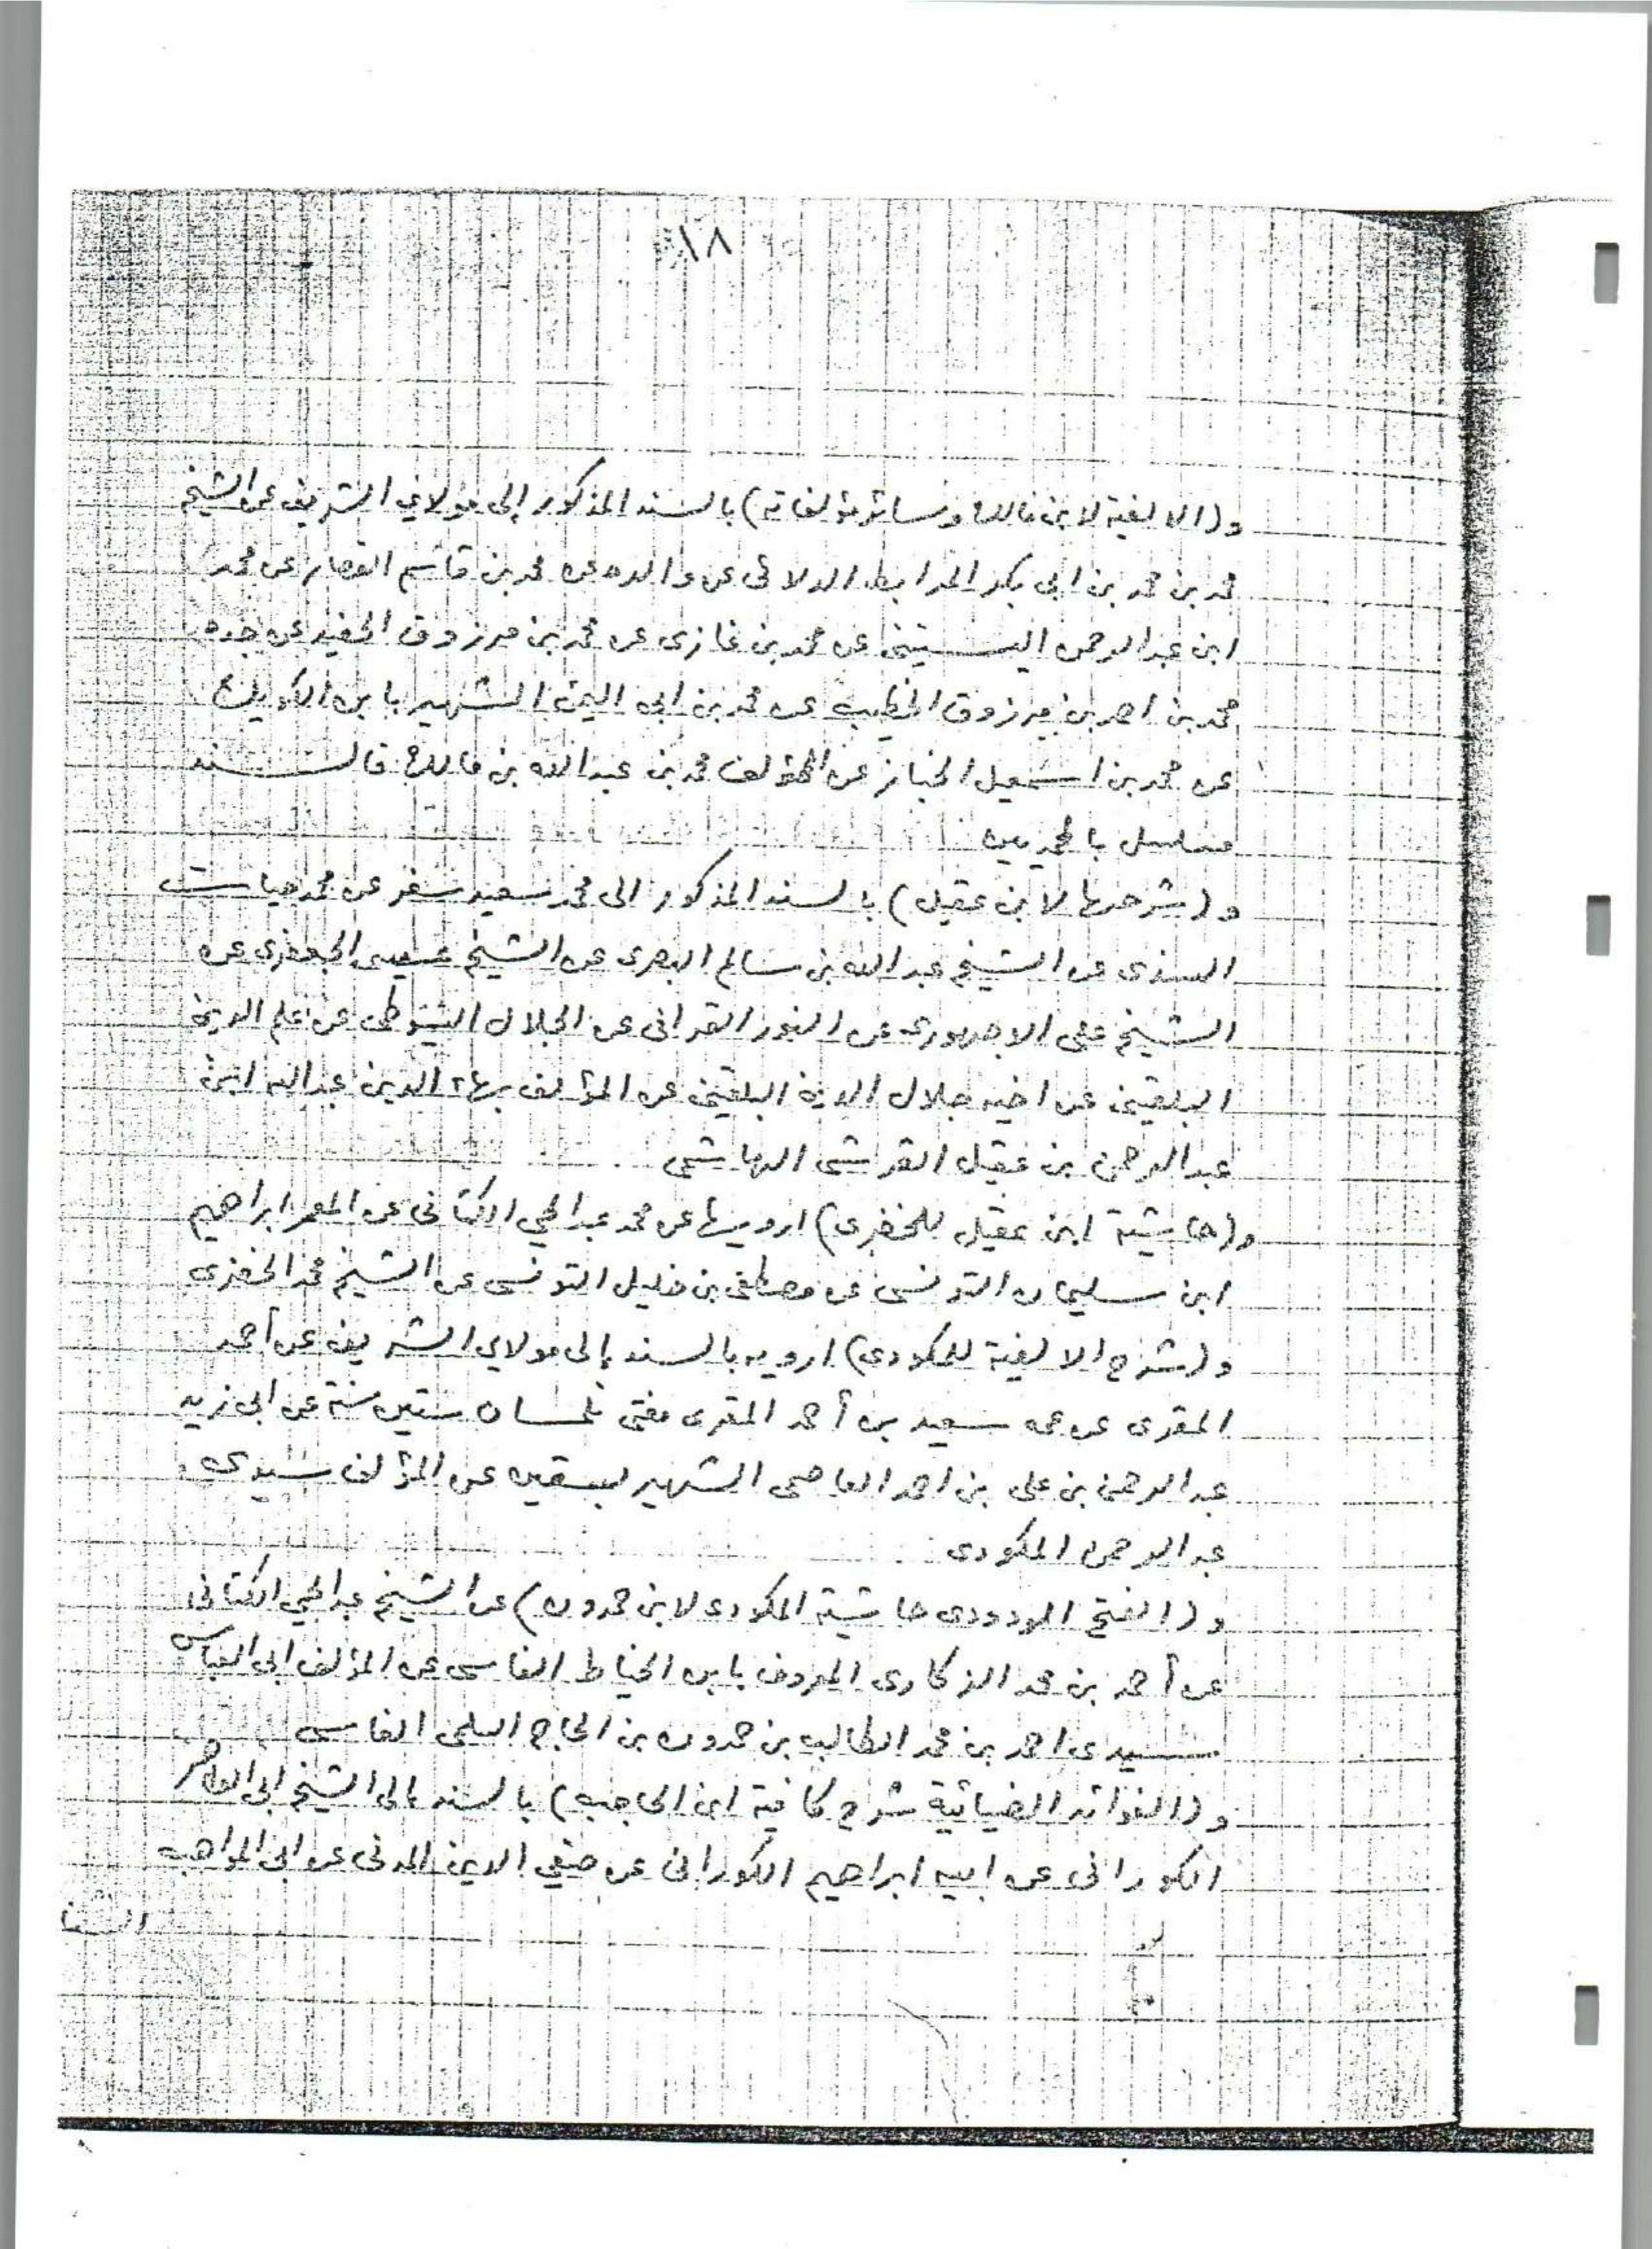 ١٨
و(الالفية لابن مالك وسائر مؤلفاته) بالسند المذكور إلى مولاي الشريف عن الشيخ
محمد بن محمد بن ابى بكر المرابط الدلائى عن والده عن محمد بن قاسم القصار عن محمد
ابن عبد الرحمن اليستينى عن محمد بن غازى عن محمد بن مرزوق الحفيد عن جده
محمد بن احمد بن مرزوق الخطيب عن محمد بن ابى اليمن الشهير بابن الكويك
عن محمد بن اسمعيل الخباز عن المؤلف محمد بن عبدالله بن مالك فالسند
مسلسل بالمحمديين
و(شرحها لابن عقيل) بالسند المذكور الى محمد سعيد سفر عن محمد حيات
السندى عن الشيخ عبد الله بن سالم البصرى عن الشيخ عيسى الجعفرى عن
الشيخ على الاجهورى عن النور القرافى عن الجلال السيوطى عن علم الدين
البلقينى عن اخيه جلال الدين البلقينى عن المؤلف بهاء الدين عبدالله ابن
عبدالرحمن بن عقيل القرشى الهاشمى
و(حاشية ابن عقيل للخضرى) ارويها عن محمد عبدالحي الكتانى عن المعمر ابراهيم
ابن سليمان التونسى عن مصطفى بن خليل التونسى عن الشيخ محمد الخضرى
و(شرح الالفية للمكودى) ارويه بالسند إلى مولاي الشريف عن أحمد
المقرى عن عمه سعيد بن أحمد المقرى مفتى تلمسان ستين سنة عن ابى زيد
عبد الرحمن بن على بن احمد العاصمى الشهير بسقين عن المؤلف سيدى
عبد الرحمن المكودى
و(الفتح الودودى حاشية المكودى لابن حمدون) عن الشيخ عبدالحي الكتانى
عن أحمد بن محمد الزكارى المعروف بابن الخياط الفاسى عن المؤلف ابى العباس
سيدى احمد بن محمد الطالب بن حمدون بن الحاج السلمى الفاسى
و(الفوائد الضيائية شرح كافية ابن الحاجب) بالسند إلى الشيخ ابى الطاهر
الكورانى عن ابيه ابراهيم الكورانى عن صفي الدين المدنى عن ابى المواهب
الشنا